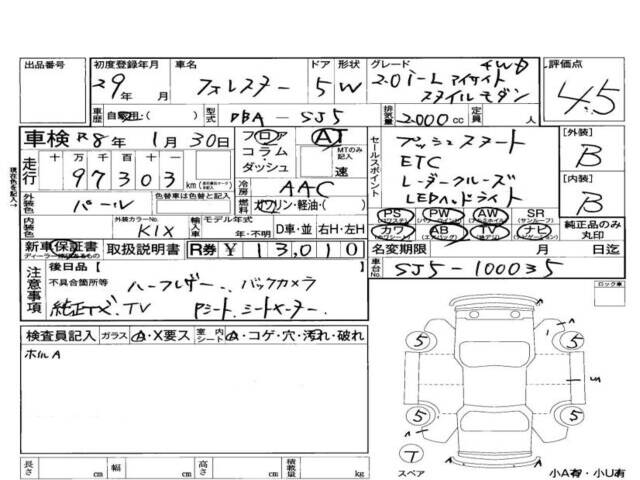 出品番号
初度登録年月
29年 月
車名
フォレスター
ドア 形状
5 W
グレード
4WD
2.0i-L アイサイト
スタイルモダン
評価点
4.5
車歴 自家用・( )
型式 DBA-SJ5
排気量 2000cc
定員 人
車検 R8年 1月 30日
フロア
コラム・
ダッシュ
AT
MTのみ記入
速
セールスポイント
プッシュスタート
ETC
レーダークルーズ
LEDヘッドライト
[外装]
B
[内装]
B
現在色を記入→
走行
十万 万 千 百 十 一
97303
km
冷房 AAC
燃料 ガソリン・軽油・( )
外装色 パール
色替車は色替と記入
内装色
外装カラーNo.
K1X
輸入車 モデル年式
年・不明
D車・並 右H・左H
PS PW AW SR
(サンルーフ)
カワ AB TV ナビ
(エアバッグ)
(ナビゲーション)
純正品のみ
丸印
新車保証書
ディーラー
取扱説明書
R券 ¥13,010
名変期限 月 日迄
車台No. SJ5-100035
注意事項
後日品 [
不具合箇所等
ハーフレザー、バックカメラ
純正ナビ、TV Pシート、シートヒーター
ロック車
検査員記入 ガラス A・X要ス 室内シート A・コゲ・穴・汚れ・破れ
ホイルA
5 5
5 5
T
スペア
小A有・小U有
長さ cm 幅 cm 高さ cm 積載量 kg